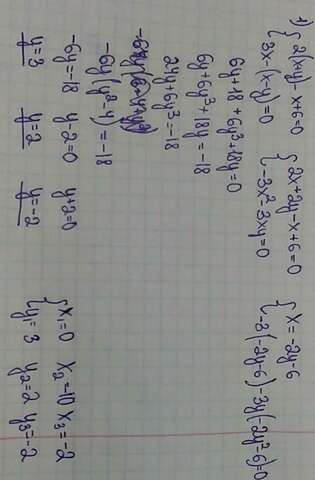 1) { 2(x+y)-x+6=0 { 2x+2y-x+6=0 { x=-2y-6
3x-(x-y)=0 -3x²-3xy=0 -3(-2y-6)-3y(-2y²-6)=0
6y+18+6y³+18y=0
6y+6y³+18y=-18
24y+6y³=-18
-6y(y²-4)=-18
-6y=-18 y-2=0 y+2=0
y=3 y=2 y=-2
{ x₁=0 x₂=-10 x₃=-2
y₁=3 y₂=2 y₃=-2